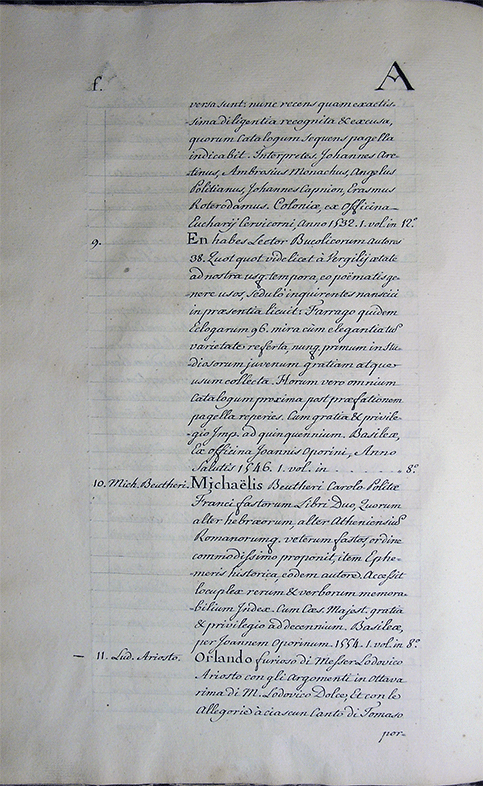 f. A
versa sunt: nunc recens quam exactis-
sima diligentia recognita & excusa,
quorum Catalogum sequens pagella
indicabit. Interpretes. Johannes Are-
tinus, Ambrosius Monachus, Angelus
Politianus, Johannes Capnion, Erasmus
Roterodamus. Coloniæ, ex Officina
Eucharij Cervicorni, Anno 1532. 1. vol. in 12.º
9. En habes Lector Bucolicorum Autores
38. Quot quot videlicet à Vergilij ætate
ad nostra usq; tempora, eo poëmatis ge-
nere usos, sedulò inquirentes nancisci
in præsentia licuit: Farrago quidem
Eclogarum 96. mira cùm elegantia tũ
varietate referta, nunq; primum in stu-
diosorum juvenum gratiam atque
usum collecta. Horum vero omnium
Catalogum proxima post præfationem
pagella reperies. Cum gratia & privile-
gio Imp. ad quinquennium. Basileæ,
Ex officina Joannis Oporini, Anno
Salutis 1546. 1. vol. in . . . . . . . . 8.º
10. Mich. Beutheri. Michaëlis Beutheri Carolo Politæ
Franci fastorum Libri Duo, Quorum
alter hebræorum, alter Atheniensiũ
Romanorumq; veterum fastos, ordine
commodissimo proponit, item Ephe-
meris historica, eodem autore. Accessit
locuplex rerum & verborum memora-
bilium Index. Cum Cæs. Majest. gratia
& privilegio ad decennium. Basileæ,
per Joannem Oporinum. 1554. 1. vol. in 8.º
– 11. Lud. Ariosto. Orlando furioso di Messer Lodovico
Ariosto con gli Argomenti in Ottava
rima di M. Lodovico Dolce, Et con le
Allegorie à ciascun Canto di Tomaso
por-